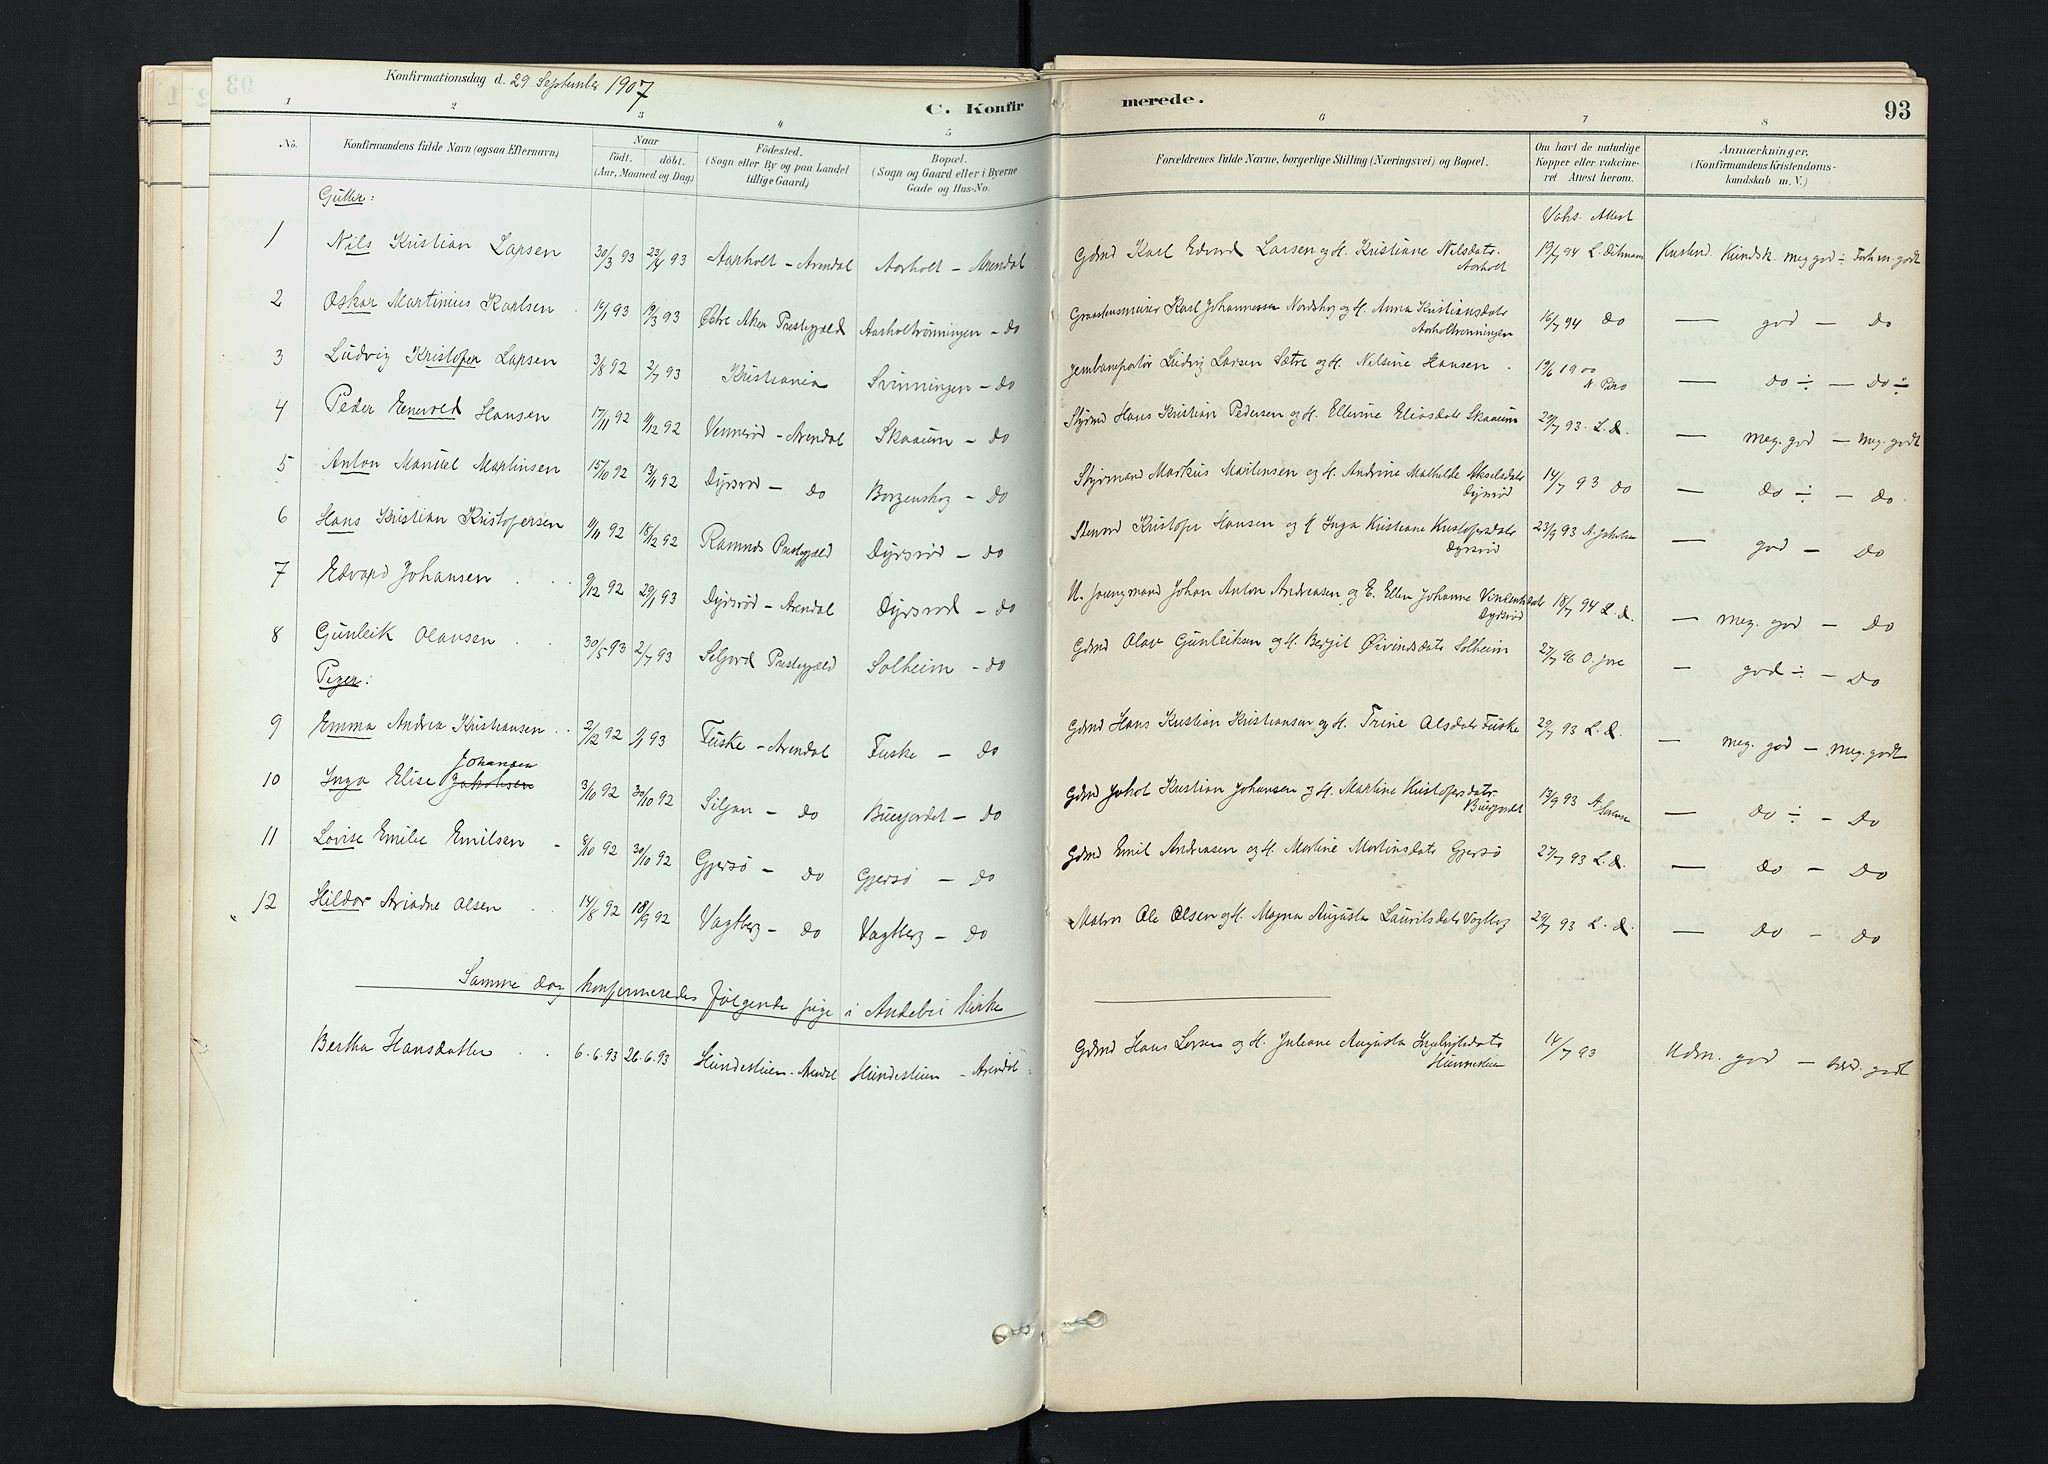 Konfirmationsdag d. 29 September 1907
C. Konfirmerede.
93
1 2 3 4 5 6 7 8
No.
Konfirmandens fulde Navn (ogsaa Efternavn)
Naar
födt. döbt.
(Aar, Maaned og Dag)
Födested.
(Sogn eller By og paa Landet
tillige Gaard)
Bopæl.
(Sogn og Gaard eller i Byerne
Gade og Hus-No.
Forældrenes fulde Navne, borgerlige Stilling (Næringsvei) og Bopæl.
Om havt de naturlige
Kopper eller vakcine-
ret Attest herom.
Anmærkninger.
(Konfirmandens Kristendoms-
kundskab m. V.)
Gutter:
Vaks. Attest
1 Nils Kristian Larsen 30/3 93 23/4 93 Aarholt - Arendal Aarholt - Arendal Gdmd Karl Edvard Larsen og H. Kristiane Nilsdatr. Aarholt 19/7 94 L. Ditmans Kristend. Kundsk. meg god ÷ Forh. m. godt
2 Oskar Martinius Karlsen 16/1 93 19/3 93 Østre Aker Prestegjeld Aarholtrønningen - do Karl Johannessen Nordskog og H. Anna Kristiansdatr Aarholtrønningen 16/7 94 do — god — do
3 Ludvig Kristofer Larsen 3/8 92 2/7 93 Kristiania Svinningen - do Jernbaneportør Ludvig Larsen Sætre og H. Nilsine Hansen 19/6 1900 — do ÷ — do ÷
4 Peder Enevold Hansen 17/11 92 11/12 92 Vennerød - Arendal Skaaum - do Styrmd Hans Kristian Pedersen og H. Ellevine Eliasdatr Skaaum 29/7 93 L. d. — meg. god — meg. godt
5 Anton Manuel Martinsen 15/10 92 13/11 92 Dyrsrød - do Borgenskog - do Styrmand Markus Martensen og H. Andrine Mathilde Akselsdatr Dyrsrød 14/7 93 do — do ÷ — do
6 Hans Kristian Kristofersen 11/11 92 18/12 92 Ramnes Prestegjeld Dyrsrød - do Kristofer Hansen og H Inga Kristiane Kristofersdatr Dyrsrød 23/9 93 A. Jakobsen — god — do
7 Edvard Johansen 9/12 92 29/1 93 Dyrsrød - Arendal Dyrsrod - do U. Jomgmand Johan Anton Andreasen og E. Ellen Johanne Vincentsdatr Dyrsrød 18/7 94 L. d. — meg. god — do
8 Gunleik Olavsen 30/5 93 2/7 93 Seljord Prestegjeld Solheim - do Gdmd Olav Gunleiksen og H. Bergit Øivindsdatr Solheim 27/7 96 O. Jore — god ÷ — do
Piger:
9 Emma Andrea Kristiansen 2/12 92 1/1 93 Fuske - Arendal Fuske - do Gdmd Hans Kristian Kristiansen og H. Trine Olsdatr Fuske 29/7 93 L. d. — meg. god — meg. godt
10 Inga Elise Jakobsen Johansen 3/10 92 30/10 92 Siljan - do Buerfjordet - do Gdmd Jakob Kristian Johansen og H. Martine Kristofersdatr. 13/9 93 — do ÷ — do
11 Lovise Emilie Emilsen 8/10 92 30/10 92 Gjersø - do Gjersø - do Gdmd Emil Andreasen og H. Martine Martinsdatr Gjersø 27/7 93 L. d. — do — do
12 Hildor Ariadne Olsen 14/8 92 18/9 92 Vagtberg - do Vagtberg - do Matrs Ole Olsen og H. Magna Augusta Lauritsdatr Vagtberg 29/7 93 L. d. — do — do
Samme dag konfirmeredes følgende pige i Andebu Kirke
Bertha Hansdatter 6.6.93 26.6.93 Hundestuen - Arendal Hundestuen - Arendal Gdmd Hans Larsen og H. Juliane Augusta Ingebrigtsdatr 14/7 93 Udm. god — særd. godt